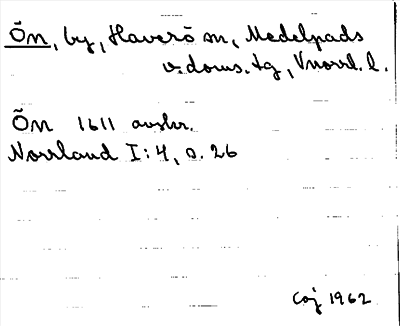 Ön, by, Haverö sn, Medelpads
v. doms. tg, Vnorrl. l.
Ön 1611 avskr.
Norrland I:4, s. 26
Caj 1962